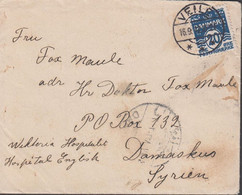 VEJLE
16.9
DANMARK
20
Fru
Fox Maule
adr Hr Doktor Fox Maule
PO Box 132
Damaskus
Syrien
Wiktoria Hospitale
Hospital English